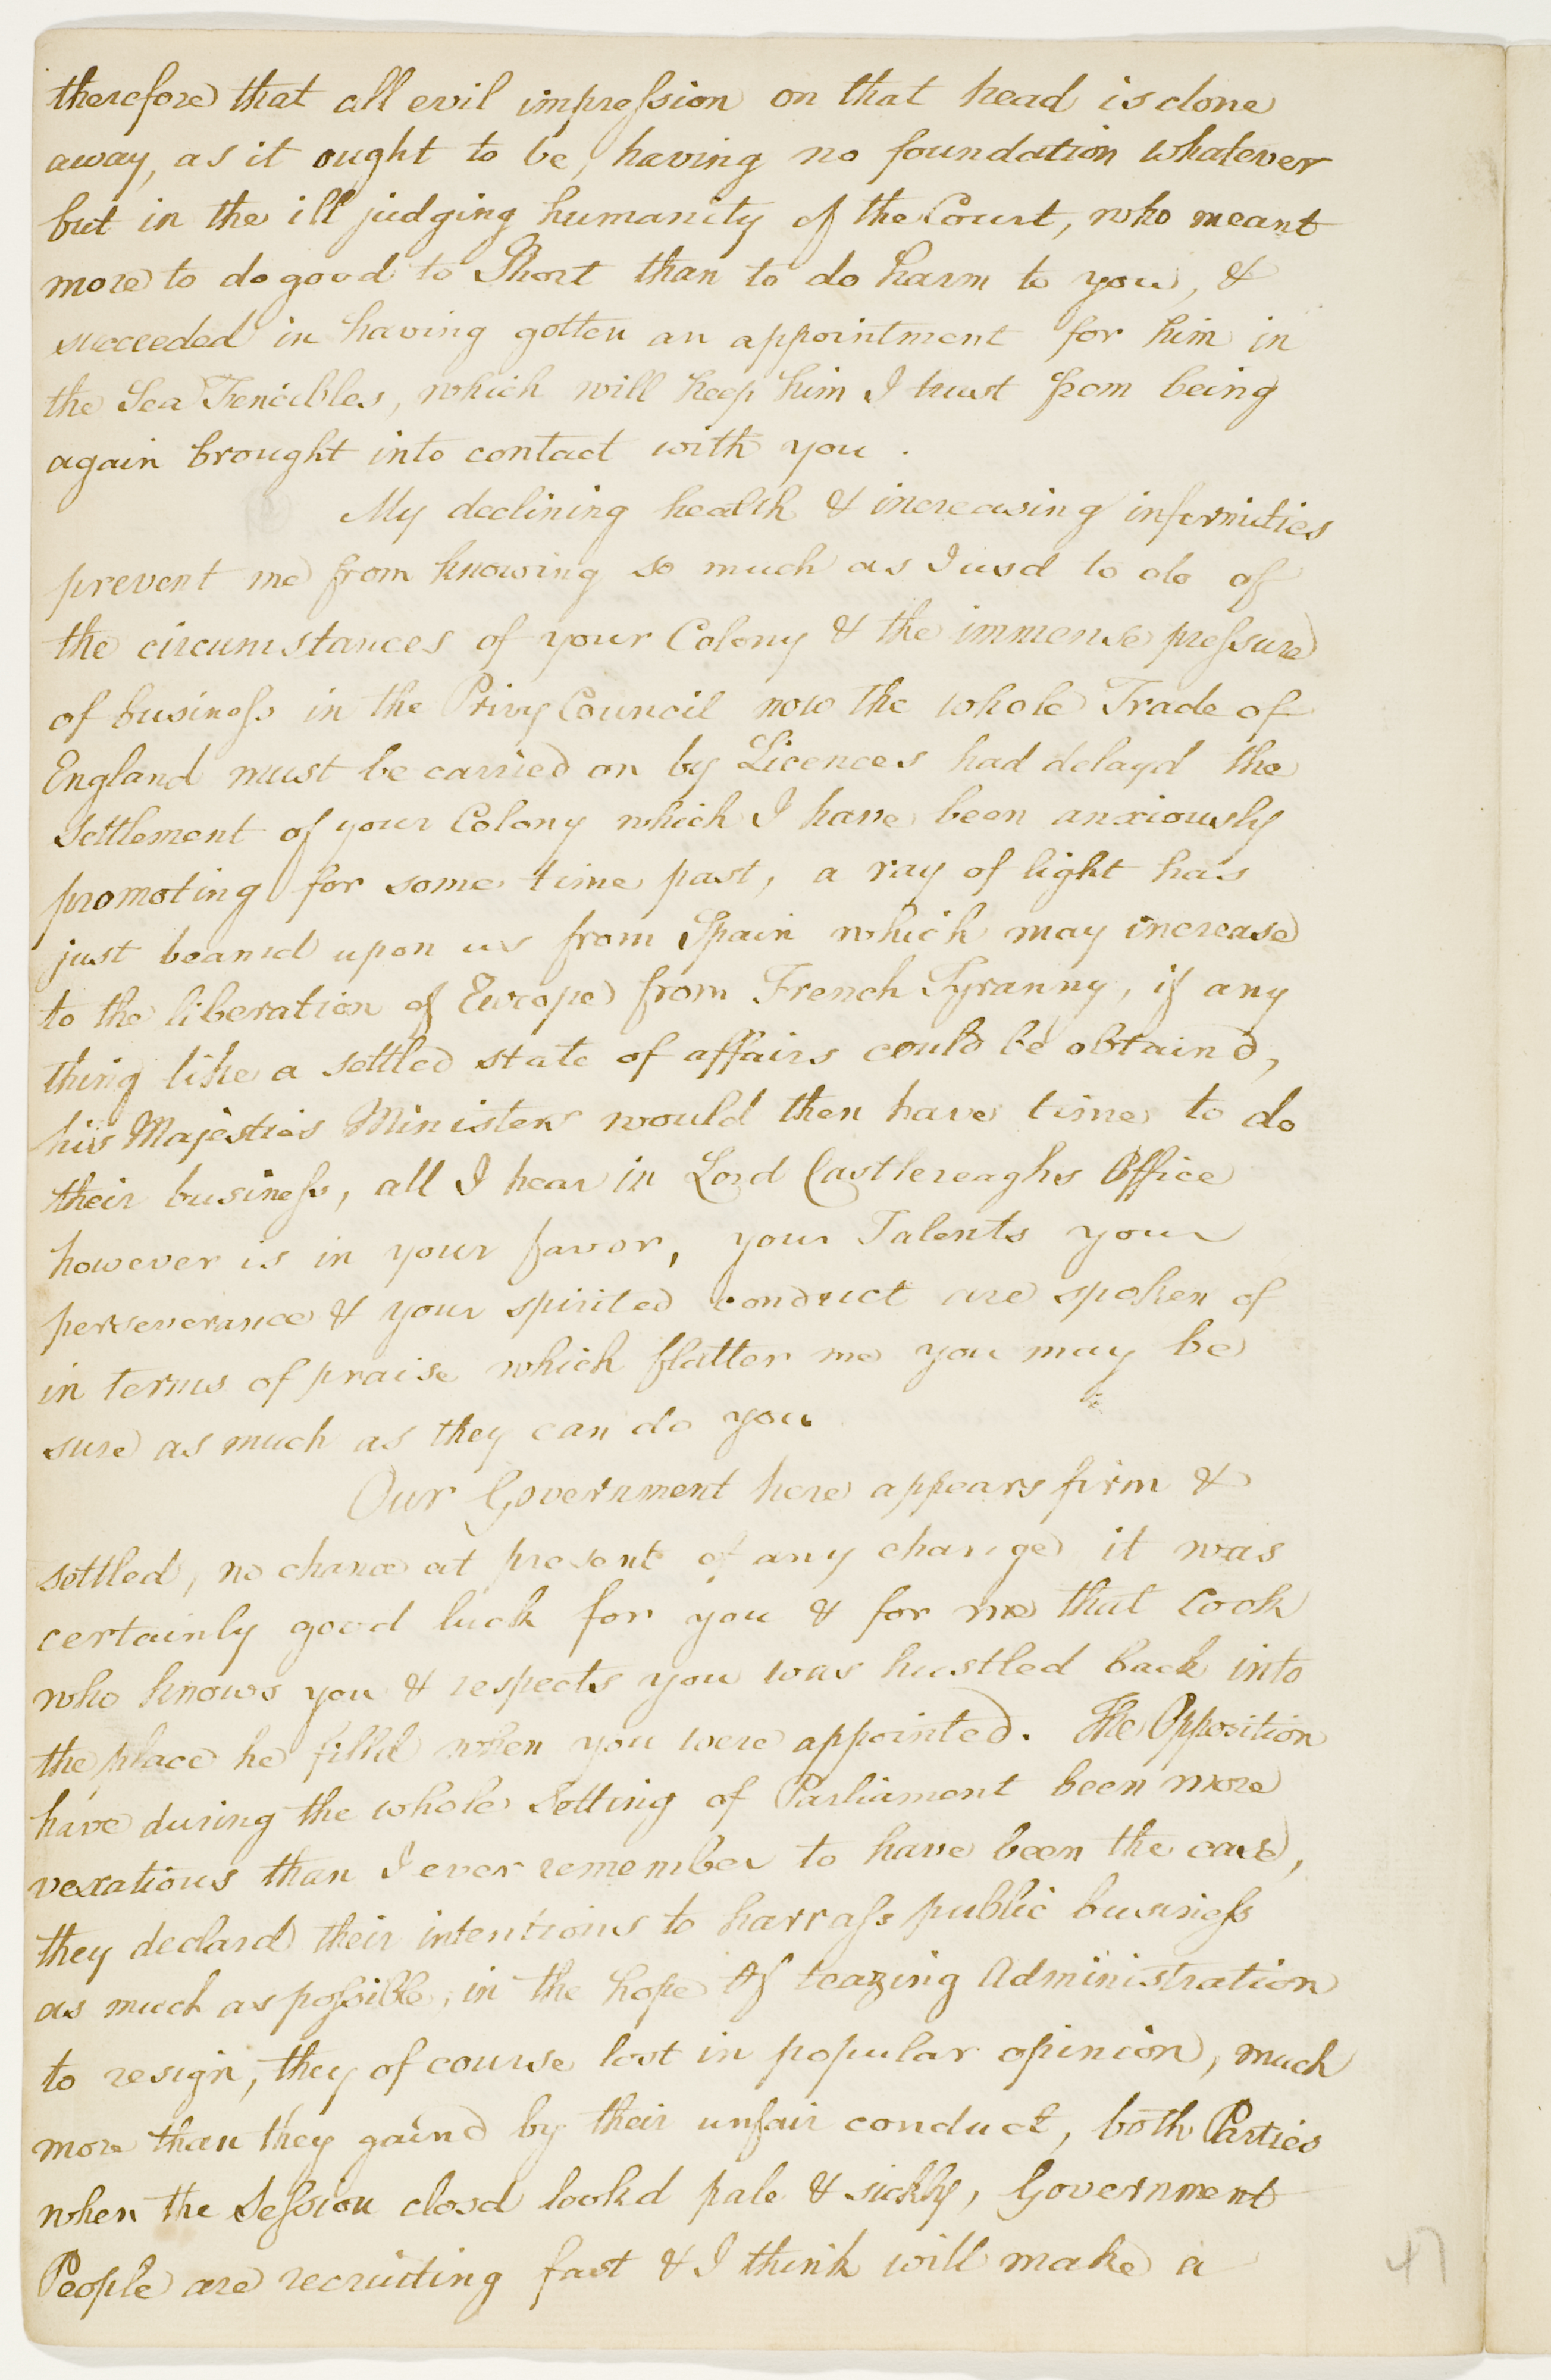 therefore that all evil impression on that head is done
away, as it ought to be, having no foundation whatever
but in the ill judging humanity of the Court, who meant
more to do good to Short than to do harm to you, &
succeeded in having gotten an appointment for him in
the Sea Fencibles, which will keep him I trust from being
again brought into contact with you.
My declining health & increasing infirmities
prevent me from knowing so much as I usd to do of
the circumstances of your Colony & the immense pressure
of business in the Privy Council now the whole Trade of
England must be carried on by Licences had delayd the
Settlement of your Colony which I have been anxiously
promoting for some time past, a ray of light has
just beamd upon us from Spain which may increase
to the liberation of Europe from French Tyranny, if any
thing like a settled state of affairs could be obtaind,
his Majesties Ministers would then have time to do
their business, all I hear in Lord Castlereaghs Office
however is in your favor, your Talents your
perseverance & your spirited conduct are spoken of
in terms of praise which flatter me you may be
sure as much as they can do you
Our Government here appears firm &
settled, no chance at present of any change it was
certainly good luck for you & for me that Cook
who knows you & respects you was hustled back into
the place he filld when you were appointed. The Opposition
have during the whole Setting of Parliament been more
vexatious than I ever remember to have been the case,
they declard their intentions to harrass public business
as much as possible, in the hope of teazing Administration
to resign, they of course lost in popular opinion, much
more than they gaind by their unfair conduct, both Parties
when the Session closd lookd pale & sickly, Government
People are recruiting fast & I think will make a
47